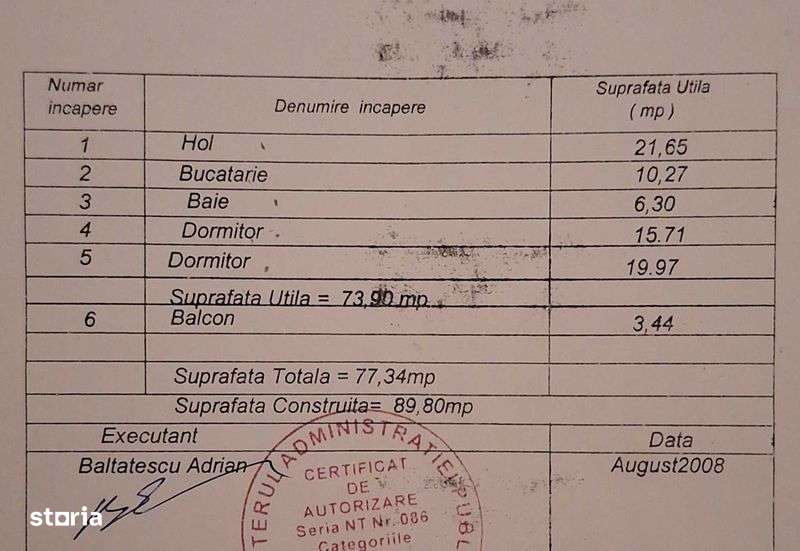 Numar incapere Denumire incapere Suprafata Utila ( mp )
1 Hol 21,65
2 Bucatarie 10,27
3 Baie 6,30
4 Dormitor 15.71
5 Dormitor 19.97
Suprafata Utila = 73,90 mp
6 Balcon 3,44
Suprafata Totala = 77,34mp
Suprafata Construita= 89,80mp
Executant Data
Baltatescu Adrian August2008
TERUL ADMINISTRATIEI PUBL
CERTIFICAT
DE
AUTORIZARE
Seria NT Nr. 086
Categoriile
storia